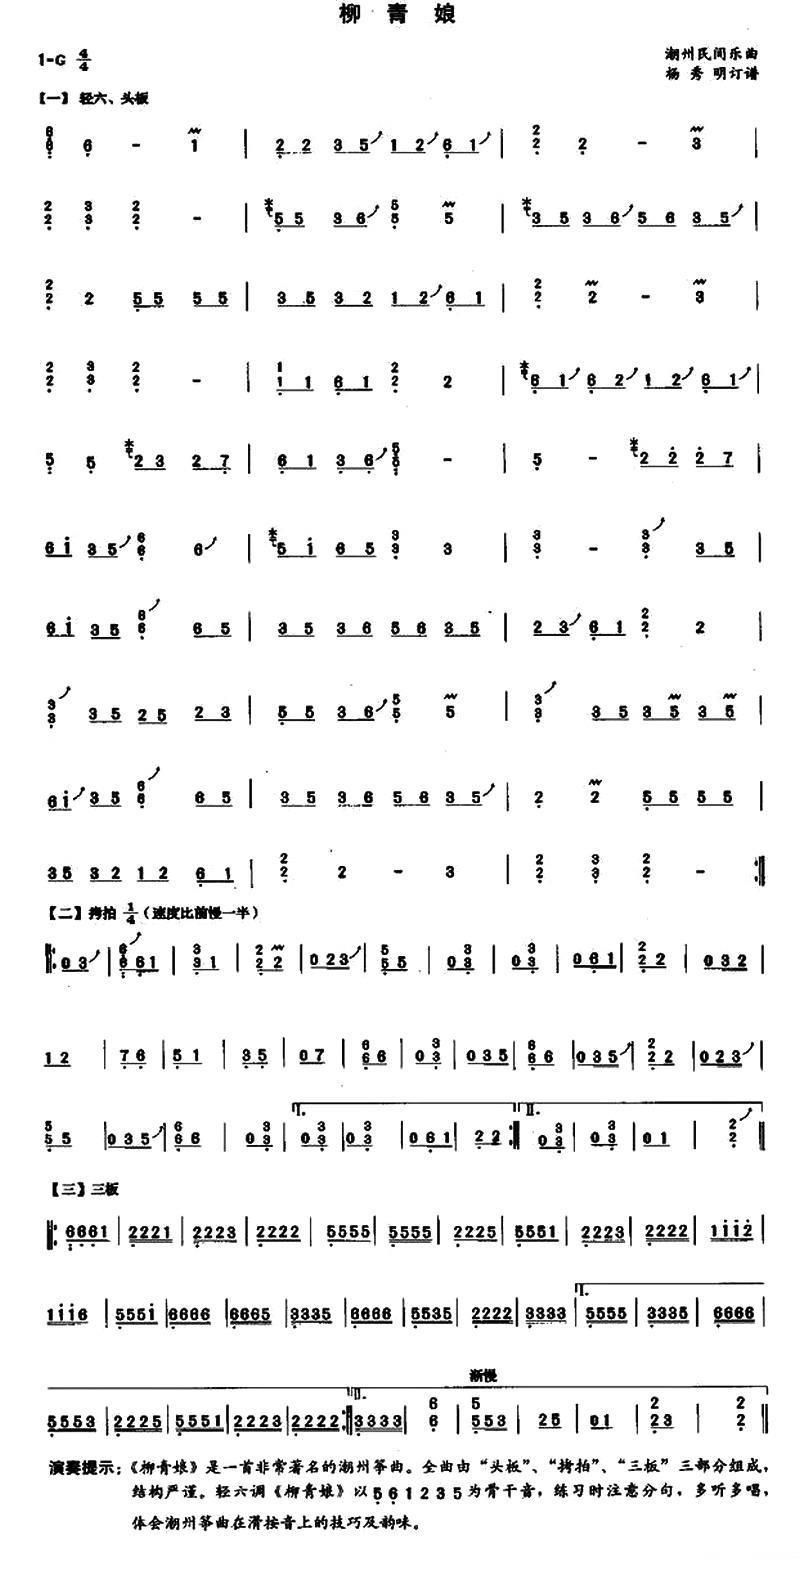 柳青娘
1-G 4/4
潮州民间乐曲
杨秀明订谱
【一】轻六、头板
6 6 6 - 1 | 2 2 3 5 1 2 6 1 | 2 2 2 - 3 |
2 2 3 3 2 2 - | 5 5 3 6 5 5 5 | 3 5 3 6 5 6 3 5 |
2 2 2 5 5 5 5 | 3 5 3 2 1 2 6 1 | 2 2 2 - 3 |
2 2 3 3 2 2 - | 1 1 1 6 1 2 2 2 | 6 1 6 2 1 2 6 1 |
5 5 2 3 2 7 | 6 1 3 6 5 5 5 - | 5 - 2 2 2 7 |
6 i 3 5 6 6 6 | 5 i 6 5 3 3 3 | 3 3 - 3 3 3 5 |
6 i 3 5 6 6 6 5 | 3 5 3 6 5 6 3 5 | 2 3 6 1 2 2 2 |
3 3 3 5 2 5 2 3 | 5 5 3 6 5 5 5 | 3 3 3 5 3 5 3 5 |
6 i 3 5 6 6 6 5 | 3 5 3 6 5 6 3 5 | 2 2 5 5 5 5 |
3 5 3 2 1 2 6 1 | 2 2 2 - 3 | 2 2 3 3 2 2 - :||
【二】拷拍 1/4（速度比前慢一半）
||: 0 3 | 6 6 6 1 | 3 3 1 | 2 2 2 | 0 2 3 | 5 5 5 | 0 3 3 | 0 3 3 | 0 6 1 | 2 2 2 | 0 3 2 |
1 2 | 7 6 | 5 1 | 3 5 | 0 7 | 6 6 6 | 0 3 3 | 0 3 5 | 6 6 6 | 0 3 5 | 2 2 2 | 0 2 3 |
I. II.
5 5 5 | 0 3 5 | 6 6 6 | 0 3 3 | 0 3 3 | 0 3 3 | 0 6 1 | 2 2 :|| 0 3 3 | 0 3 3 | 0 1 | 2 2 ||
【三】三板
||: 6661 | 2221 | 2223 | 2222 | 5555 | 5555 | 2225 | 5551 | 2223 | 2222 | 1ii2 |
I.
1ii6 | 555i | 6666 | 6665 | 3335 | 6666 | 5535 | 2222 | 3333 | 5555 | 3335 | 6666 |
II. 渐慢
5553 | 2225 | 5551 | 2223 | 2222 :|| 3333 | 6 6 | 5 553 | 25 | 01 | 2 23 | 2 2 ||
演奏提示：《柳青娘》是一首非常著名的潮州筝曲。全曲由“头板”、“拷拍”、“三板”三部分组成，
结构严谨。轻六调《柳青娘》以5 6 1 2 3 5为骨干音，练习时注意分句，多听多唱，
体会潮州筝曲在滑按音上的技巧及韵味。